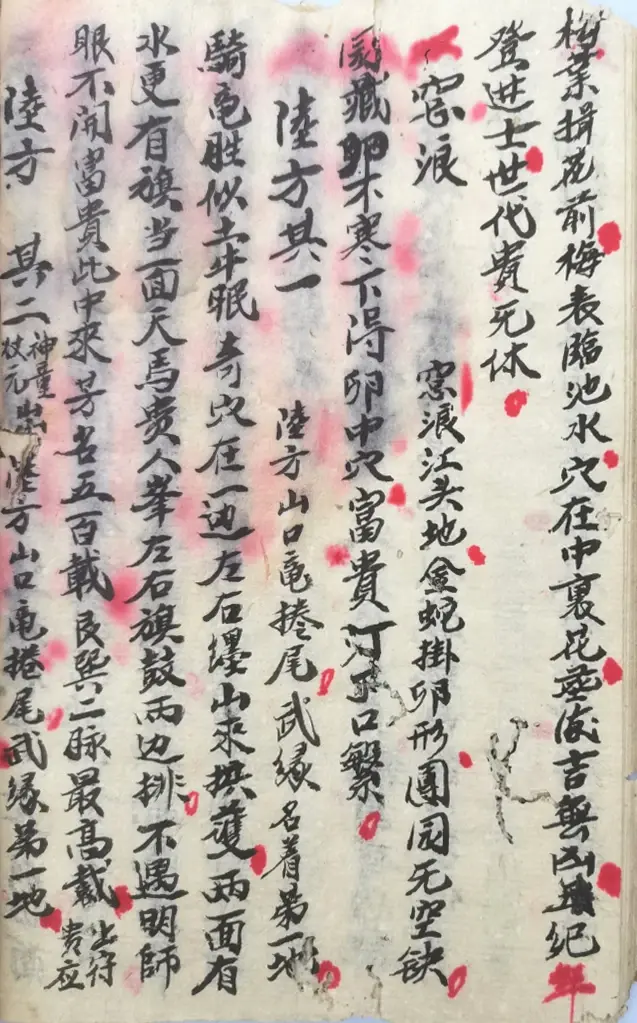 梅業揖花前梅表臨池水穴在中裏花蕊後吉無凶紀年
登进士世代贵无休
窓浪 窓浪江头地金蛇掛卵形團园无空缺
藏卵不寒下得卵中穴富貴丁口繁
陸方其一 陸方山口竜捲尾武緣名著第一地
騎竜胜似土牛眠奇穴在一边左右纏山來拱護两面有
水更有旗当面天馬贵人峯左右旗鼓两边排不遇明師
眼不開富貴此中來芳名五百載艮巽二脉最高載上符贵应
陸方 其二 神童出 状元 陸方山口竜捲尾武緣第一地